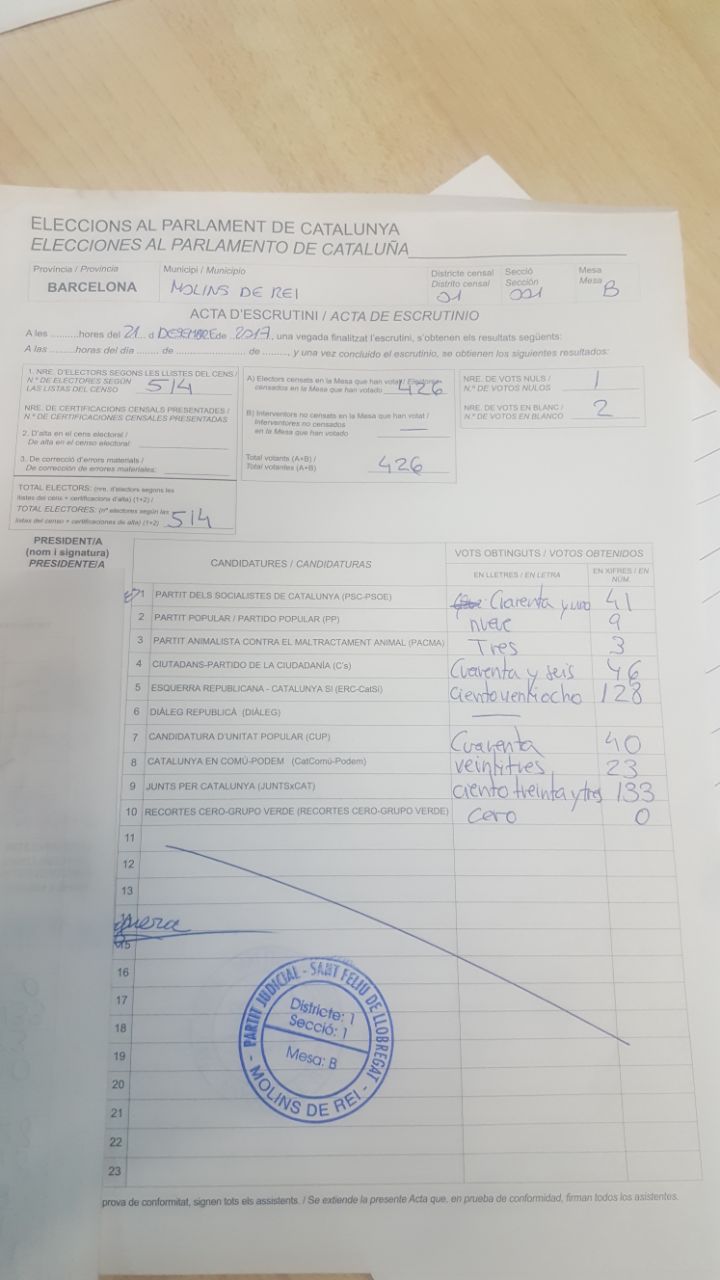 ELECCIONS AL PARLAMENT DE CATALUNYA
ELECCIONES AL PARLAMENTO DE CATALUÑA
Província / Provincia Municipi / Municipio Districte censal Secció Mesa
Distrito censal Sección Mesa
BARCELONA MOLINS DE REI 01 001 B
ACTA D'ESCRUTINI / ACTA DE ESCRUTINIO
A les ..........hores del 21 d DESEMBRE de 2017, una vegada finalitzat l'escrutini, s'obtenen els resultats següents:
A las ..........hores del día ........ de ........................ de .........., y una vez concluido el escrutinio, se obtienen los siguientes resultados:
1. NRE. D'ELECTORS SEGONS LES LLISTES DEL CENS /
N.º DE ELECTORES SEGÚN
LAS LISTAS DEL CENSO 514
NRE. DE CERTIFICACIONS CENSALS PRESENTADES /
N.º DE CERTIFICACIONES CENSALES PRESENTADAS
2. D'alta en el cens electoral /
De alta en el censo electoral:
3. De correcció d'errors materials /
De corrección de errores materiales:
TOTAL ELECTORS: (nre. d'electors segons les
llistes del cens + certificacions d'alta) (1+2) /
TOTAL ELECTORES: (nº electores según las
listas del censo + certificaciones de alta) (1+2) 514
A) Electors censats en la Mesa que han votat / Electores
censados en la Mesa que han votado 426
B) Interventors no censats en la Mesa que han votat /
Interventores no censados
en la Mesa que han votado —
Total votants (A+B) /
Total votantes (A+B) 426
NRE. DE VOTS NULS /
N.º DE VOTOS NULOS 1
NRE. DE VOTS EN BLANC /
N.º DE VOTOS EN BLANCO 2
PRESIDENT/A
(nom i signatura)
PRESIDENTE/A
CANDIDATURES / CANDIDATURAS VOTS OBTINGUTS / VOTOS OBTENIDOS
EN LLETRES / EN LETRA EN XIFRES / EN NÚM.
1 PARTIT DELS SOCIALISTES DE CATALUNYA (PSC-PSOE) Clarenta y uno 41
2 PARTIT POPULAR / PARTIDO POPULAR (PP) nueve 9
3 PARTIT ANIMALISTA CONTRA EL MALTRACTAMENT ANIMAL (PACMA) Tres 3
4 CIUTADANS-PARTIDO DE LA CIUDADANÍA (C's) Cuarenta y seis 46
5 ESQUERRA REPUBLICANA - CATALUNYA SÍ (ERC-CatSí) ciento ventiocho 128
6 DIÀLEG REPUBLICÀ (DIÀLEG) —
7 CANDIDATURA D'UNITAT POPULAR (CUP) Cuarenta 40
8 CATALUNYA EN COMÚ-PODEM (CatComú-Podem) veintitres 23
9 JUNTS PER CATALUNYA (JUNTSxCAT) ciento treinta y tres 133
10 RECORTES CERO-GRUPO VERDE (RECORTES CERO-GRUPO VERDE) Cero 0
11
12
13
15
16
17
18
19
20
21
22
23
PARTIT JUDICIAL - SANT FELIU DE LLOBREGAT - MOLINS DE REI -
Districte: 1
Secció: 1
Mesa: B
prova de conformitat, signen tots els assistents. / Se extiende la presente Acta que, en prueba de conformidad, firman todos los asistentes.